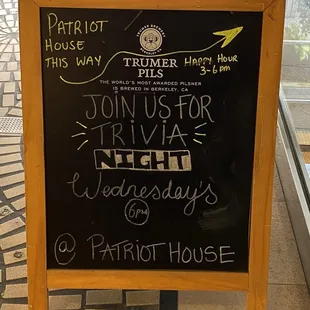 PATRIOT
HOUSE
THIS WAY
HAPPY HOUR
3-6pm
TRUMER
PILS
THE WORLD'S MOST AWARDED PILSNER
IS BREWED IN BERKELEY, CA
JOIN US FOR
TRIVIA
NIGHT
Wednesday's
6pm
@ PATRIOT HOUSE